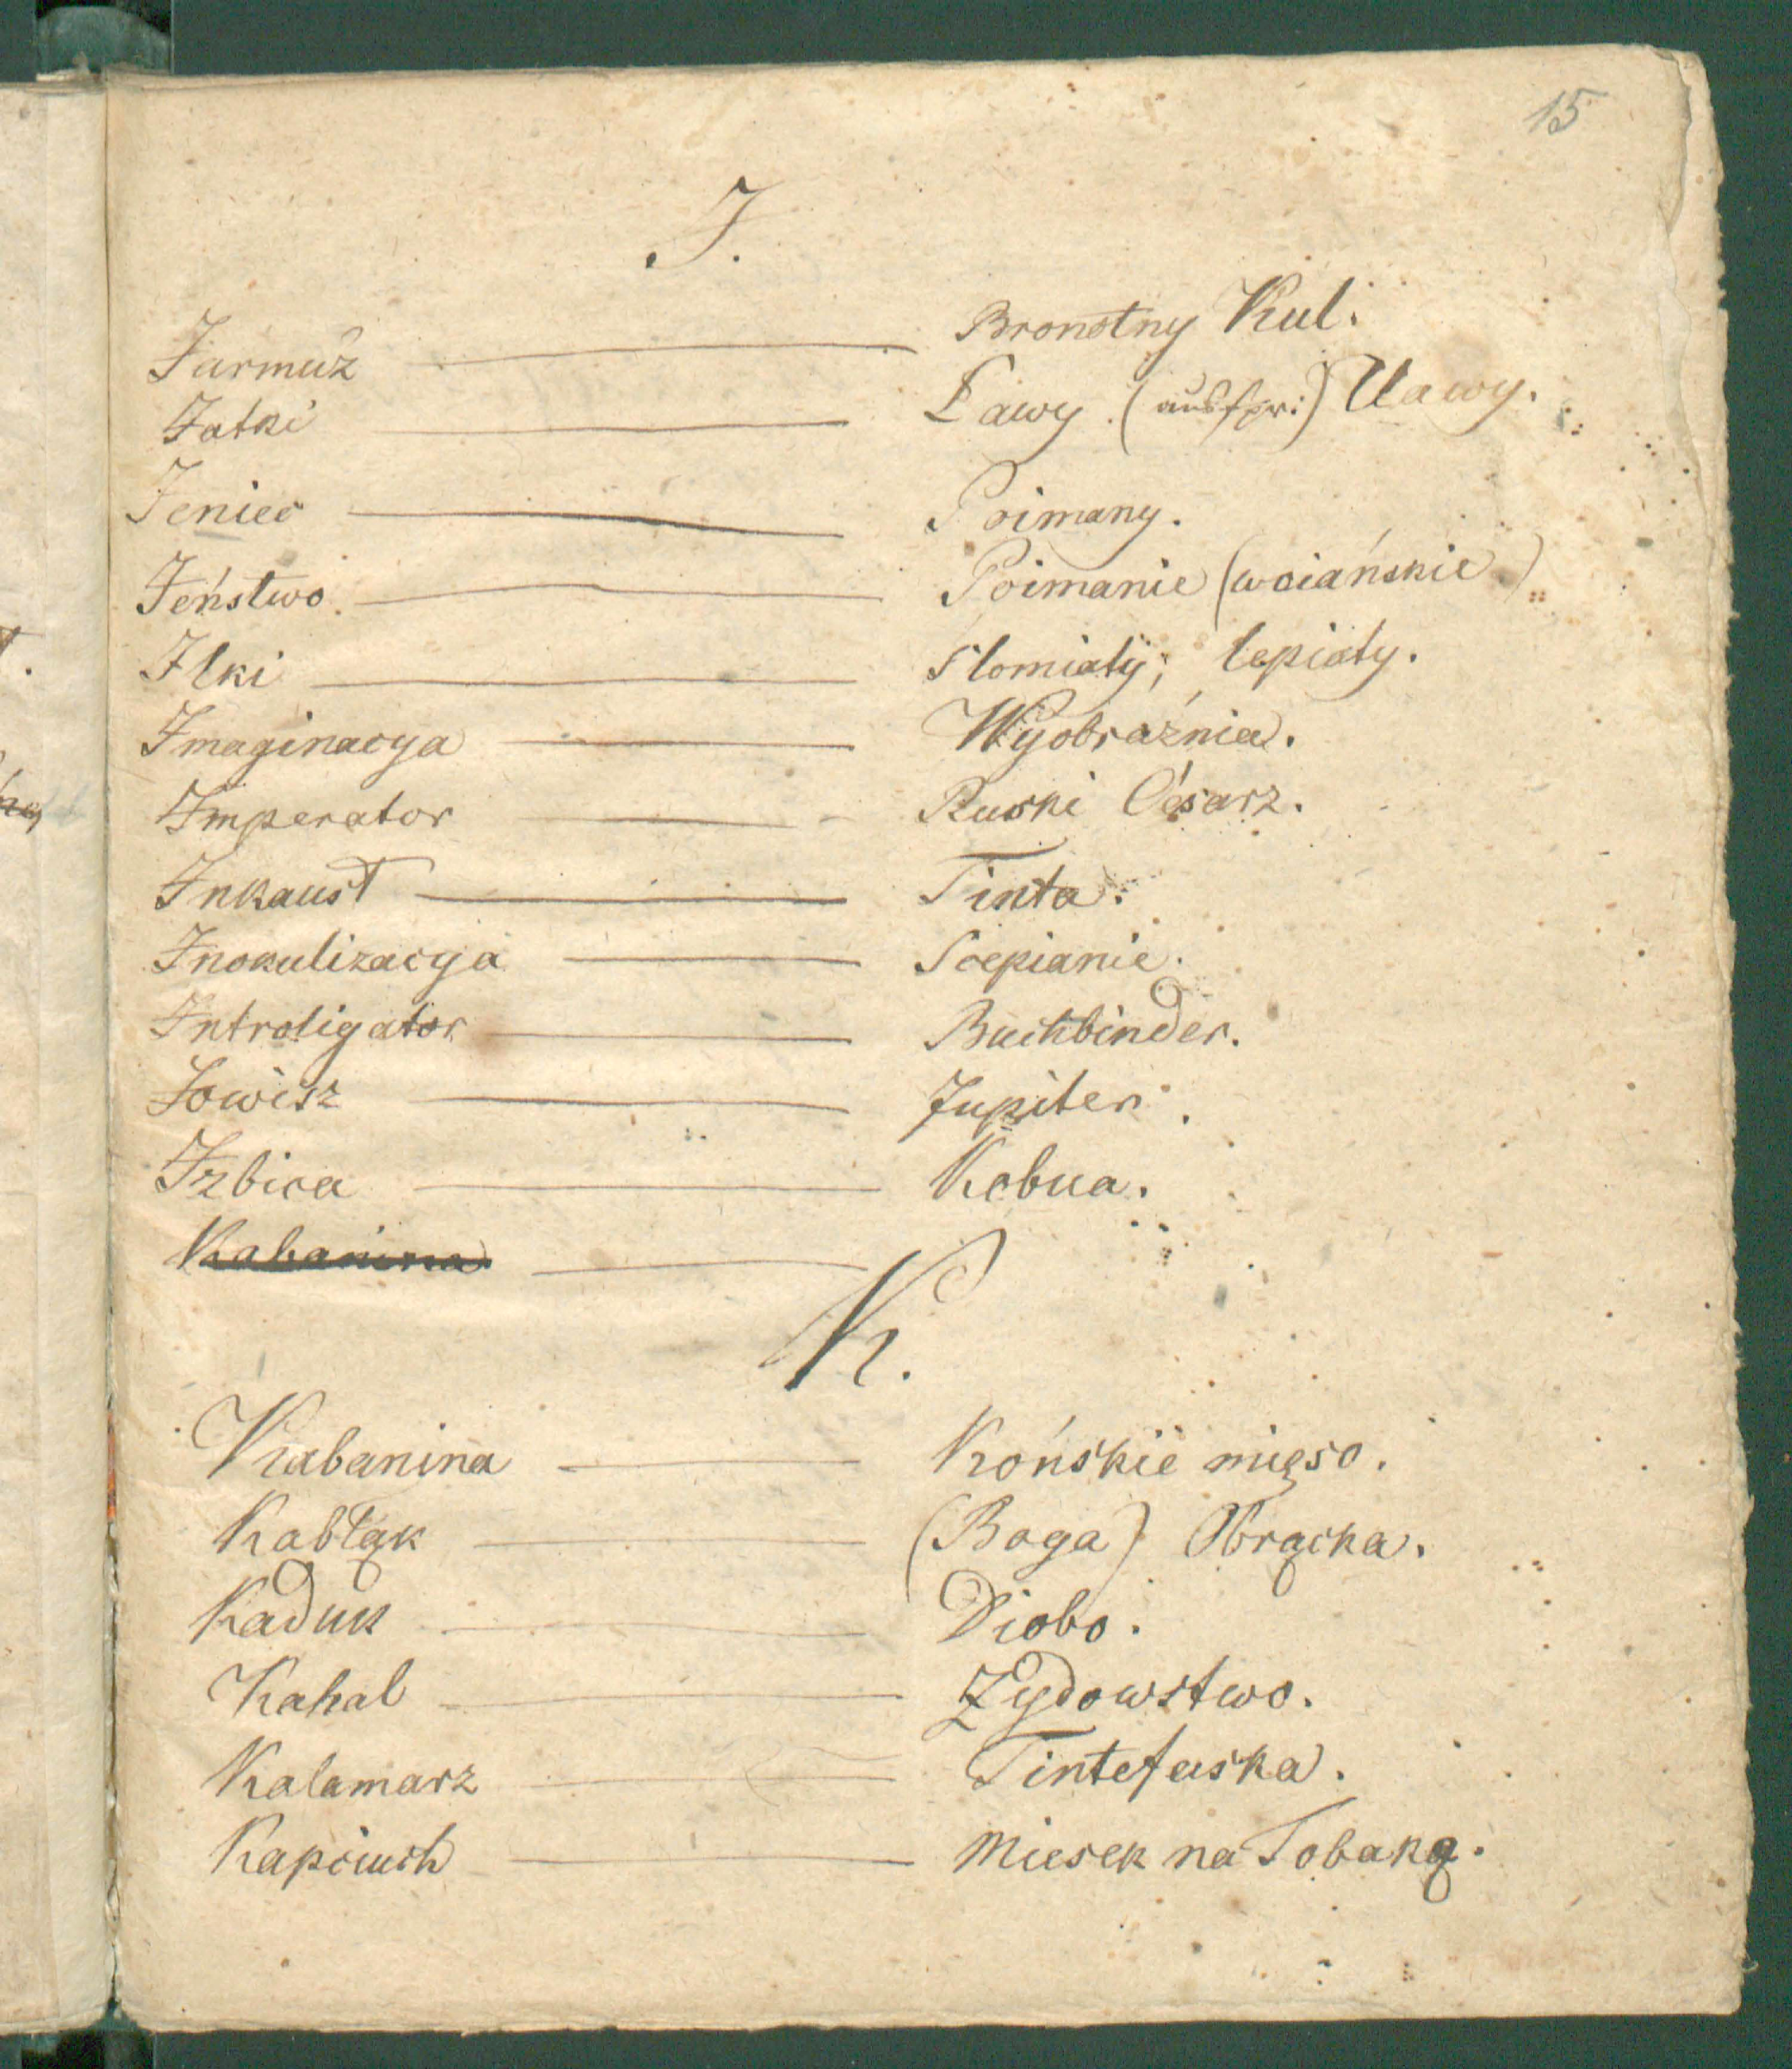 15
J.
Jarmuż — Bronotny Kul.
Jatki — Ławy (ausspr:) Uawy.
Jeniec — Poimany.
Jeństwo — Poimanie (woiańskie)
Ilki — Slomiaty; lepiaty.
Imaginacya — Wyobraźnia.
Imperator — Ruski Césarz.
Inkaust — Tinta.
Inokulizacya — Scepianie.
Introligator — Buchbinder.
Jowisz — Jupiter.
Izbica — Kobua.
Kabanina —
K.
Kabanina — Końskie mięso.
Kabłąk — (Boga) Obrącka.
Kaduk — Diobo.
Kahal — Żydowstwo.
Kalamarz — Tintefaska.
Kapciuch — Miesek na Tobaką.